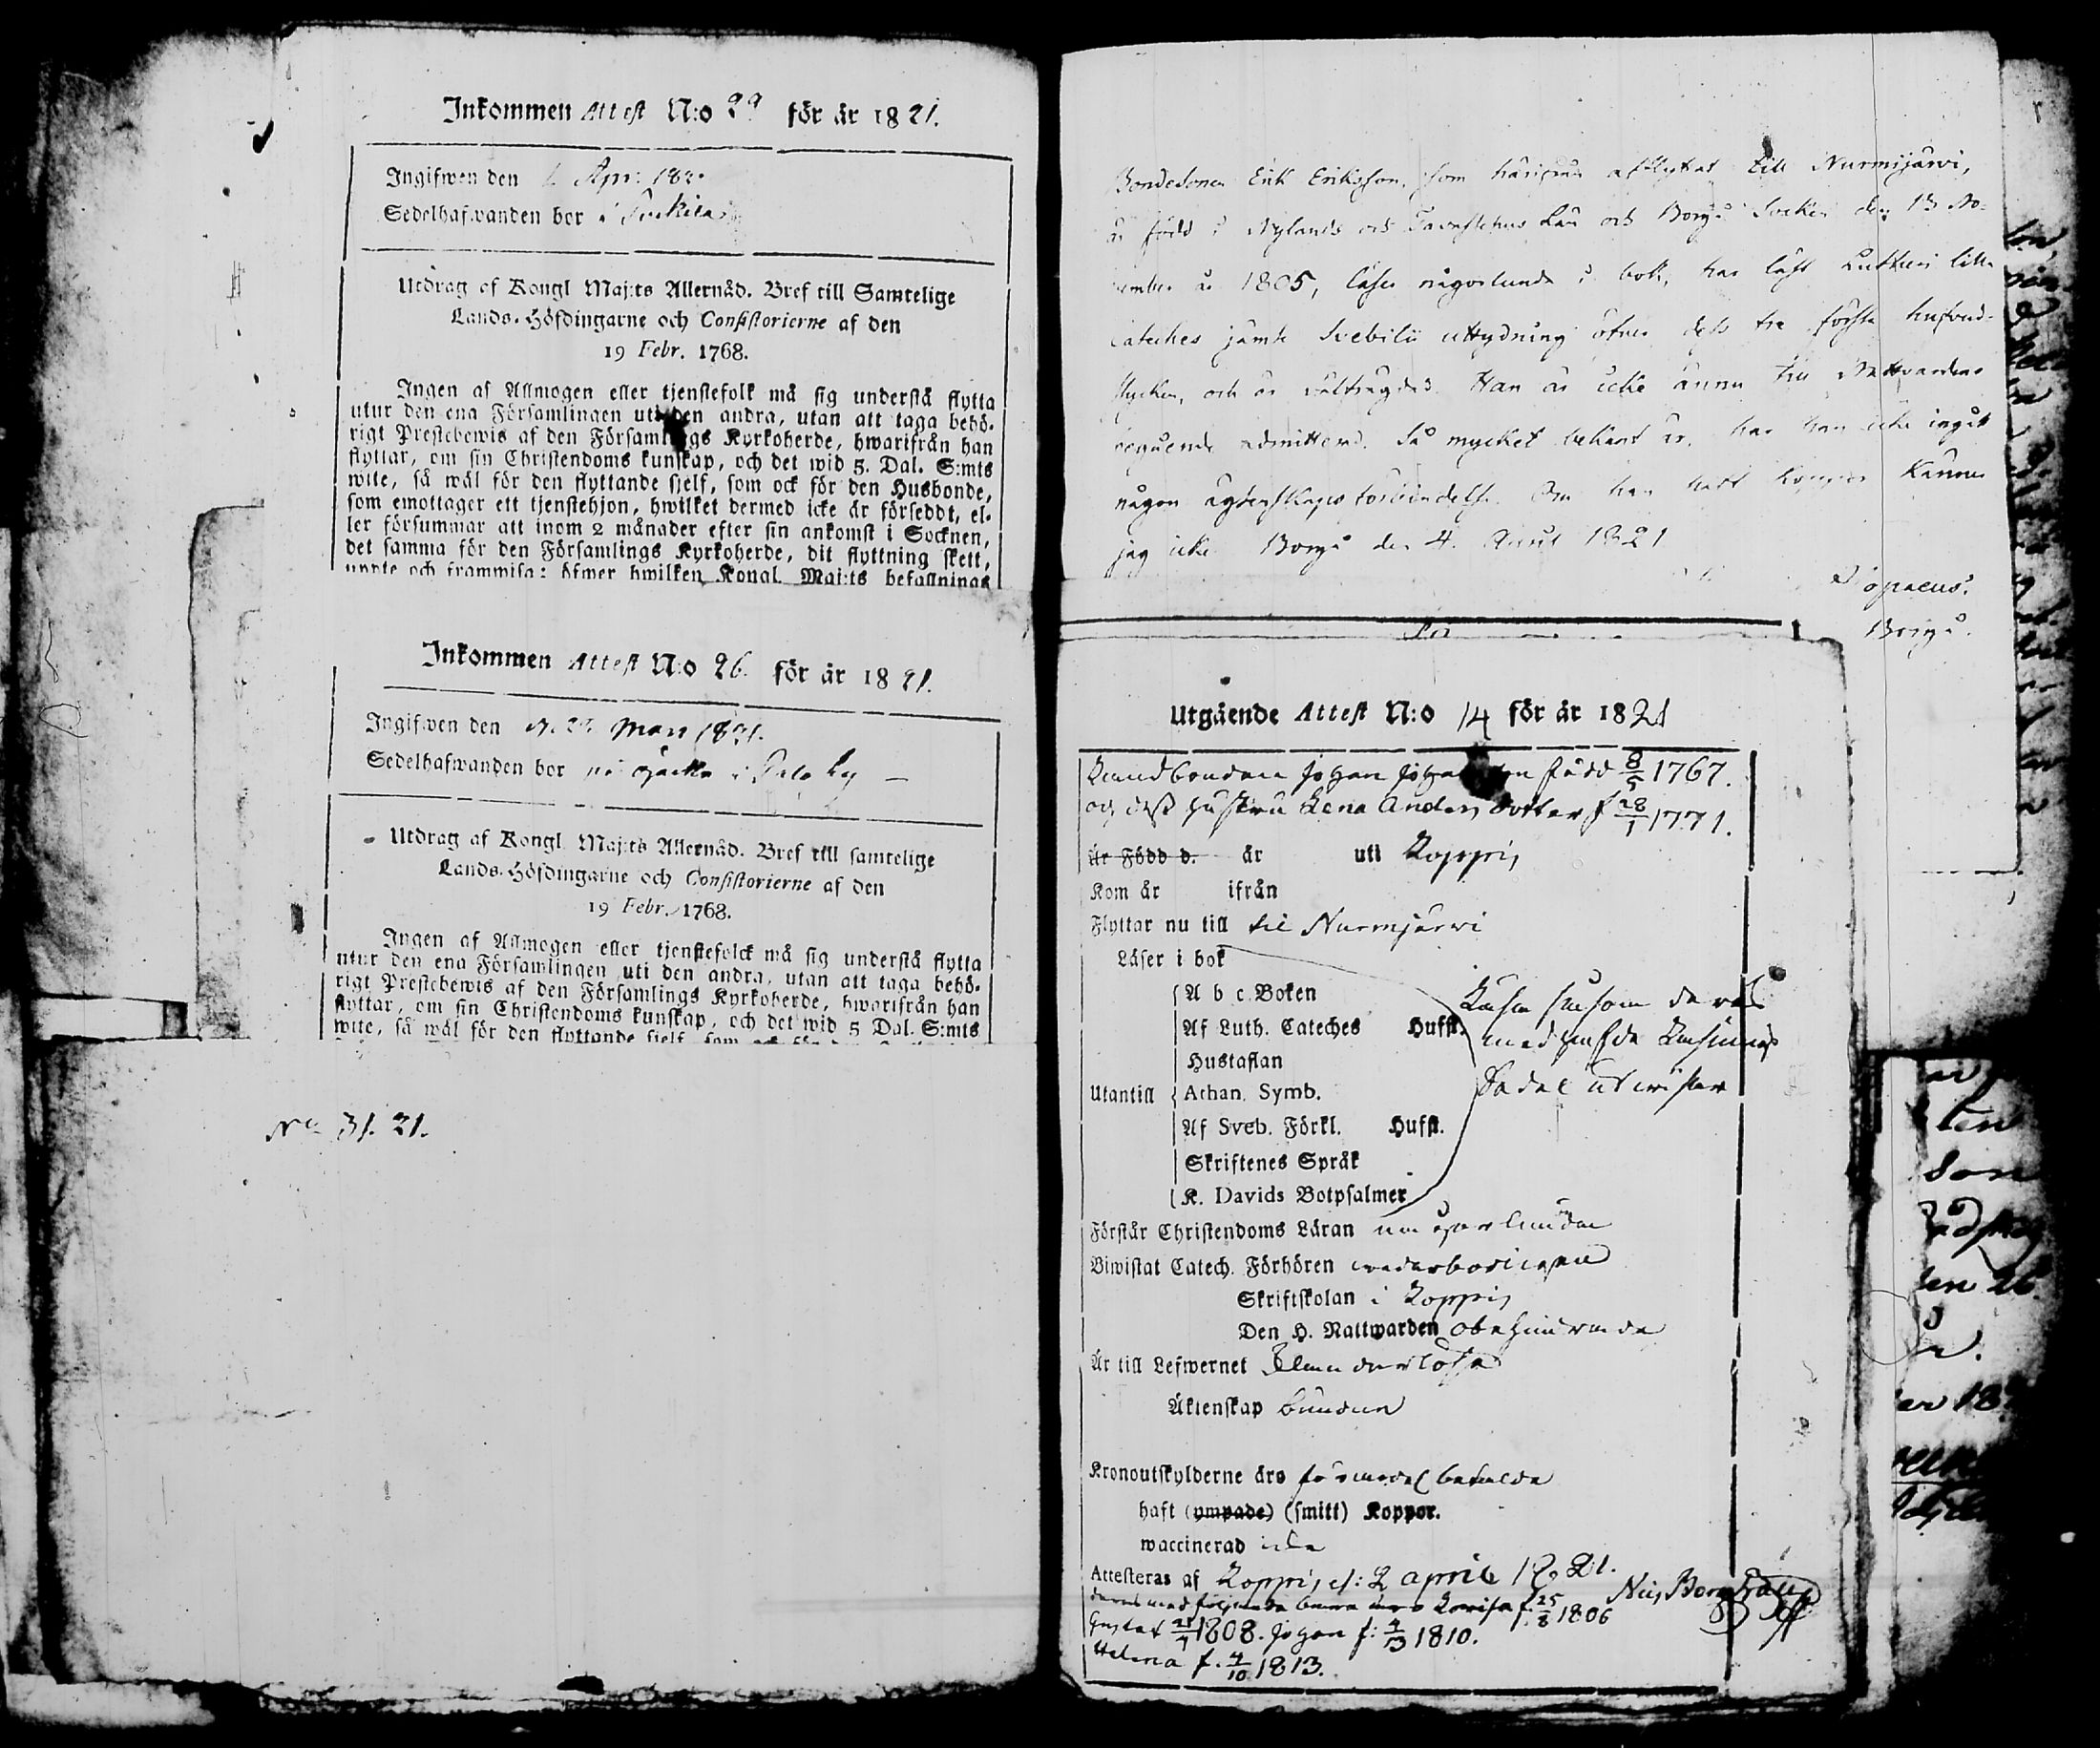 Inkommen Attest N:o 29 för år 1821.
Ingifwen den Apr: 182
Sedelhafwanden bor i
Utdrag af Kongl Maj:ts Allernåd. Bref till Samtelige
Lands-Höfdingarne och Consistorierne af den
19 Febr. 1768.
Ingen af Allmogen eller tjenstefolk må sig understå flytta
utur den ena Församlingen uti den andra, utan att taga behö-
rigt Prestebewis af den Församlings Kyrkoherde, hwarifrån han
flyttar, om sin Christendoms kunskap, och det wid 5. Dal. S:mts
wite, så wäl för den flyttande sjelf, som ock för den Husbonde,
som emottager ett tjenstehjon, hwilket dermed icke är försedt, el-
ler försummar att inom 2 månader efter sin ankomst i Socknen,
det samma för den Församlings Kyrkoherde, dit flyttning skett,
uppte och frammisa: öfwer hwilken Kongl. Maj:ts befallnings
Inkommen Attest N:o 26. för år 1821.
Ingifwen den Mars 1821.
Sedelhafwanden bor på i
Utdrag af Kongl Maj:ts Allernåd. Bref till samtelige
Lands-Höfdingarne och Consistorierne af den
19 Febr. 1768.
Ingen af Allmogen eller tjenstefolck må sig understå flytta
utur den ena Församlingen uti den andra, utan att taga behö-
rigt Prestebewis af den Församlings Kyrkoherde, hwarifrån han
flyttar, om sin Christendoms kunskap, och det wid 5 Dal. S:mts
wite, så wäl för den flyttande sjelf, som ock för den
No 31. 21.
Bondesonen Erik Eriksson, som härifrån afflyttat till Nurmijärwi,
är född i Nylands och Tavastehus Län och Borgå Socken den 13 No-
vember år 1805, läser någorlunda i bok, har läst Lutheri lilla
cateches jämte Svebilii uttydning öfver dess tre första hufvud-
stycken, och är välfrägdad. Han är icke ännu till Nattvardens
begående admitterad. Så mycket bekant är, har han icke ingått
någon ägtenskaps förbindelse. Om han haft koppor känner
jag icke Borgå den 4. April 1821
Borgå.
Utgående Attest N:o 14 för år 1821
Landbonden Johan Johansson född 8/5 1767.
och dess hustru Lena Anders dotter f 28/1 1771.
Är Född d. år uti Koppis
Kom år ifrån
Flyttar nu till til Nurmjärwi
Läser i bok
A b c Boken
Af Luth. Cateches Hufst.
Hustaflan
Utantill Athan. Symb.
Af Sveb. Förkl. Hufst.
Skriftenes Språk
K. Davids Botpsalmer
Läsa såsom deras
medhafda Läsnings
Sedel utwisar
Förstår Christendoms Läran någorlunda
Biwistat Catech. Förhören wederbörligen
Skriftskolan i Koppis
Den H. Nattwarden obehindrade
Är till Lefwernet
Äktenskap bunden
Kronoutskylderne äro förmodel. betalda
haft (ympade) (smitt) Koppor.
waccinerad icke
Attesteras af Koppis d: 2 april 1821.
deras med följande barn äro Lovisa f. 25/8 1806
Gustaf 1808. Johan f: 4/3 1810.
Helena f. 4/10 1813.